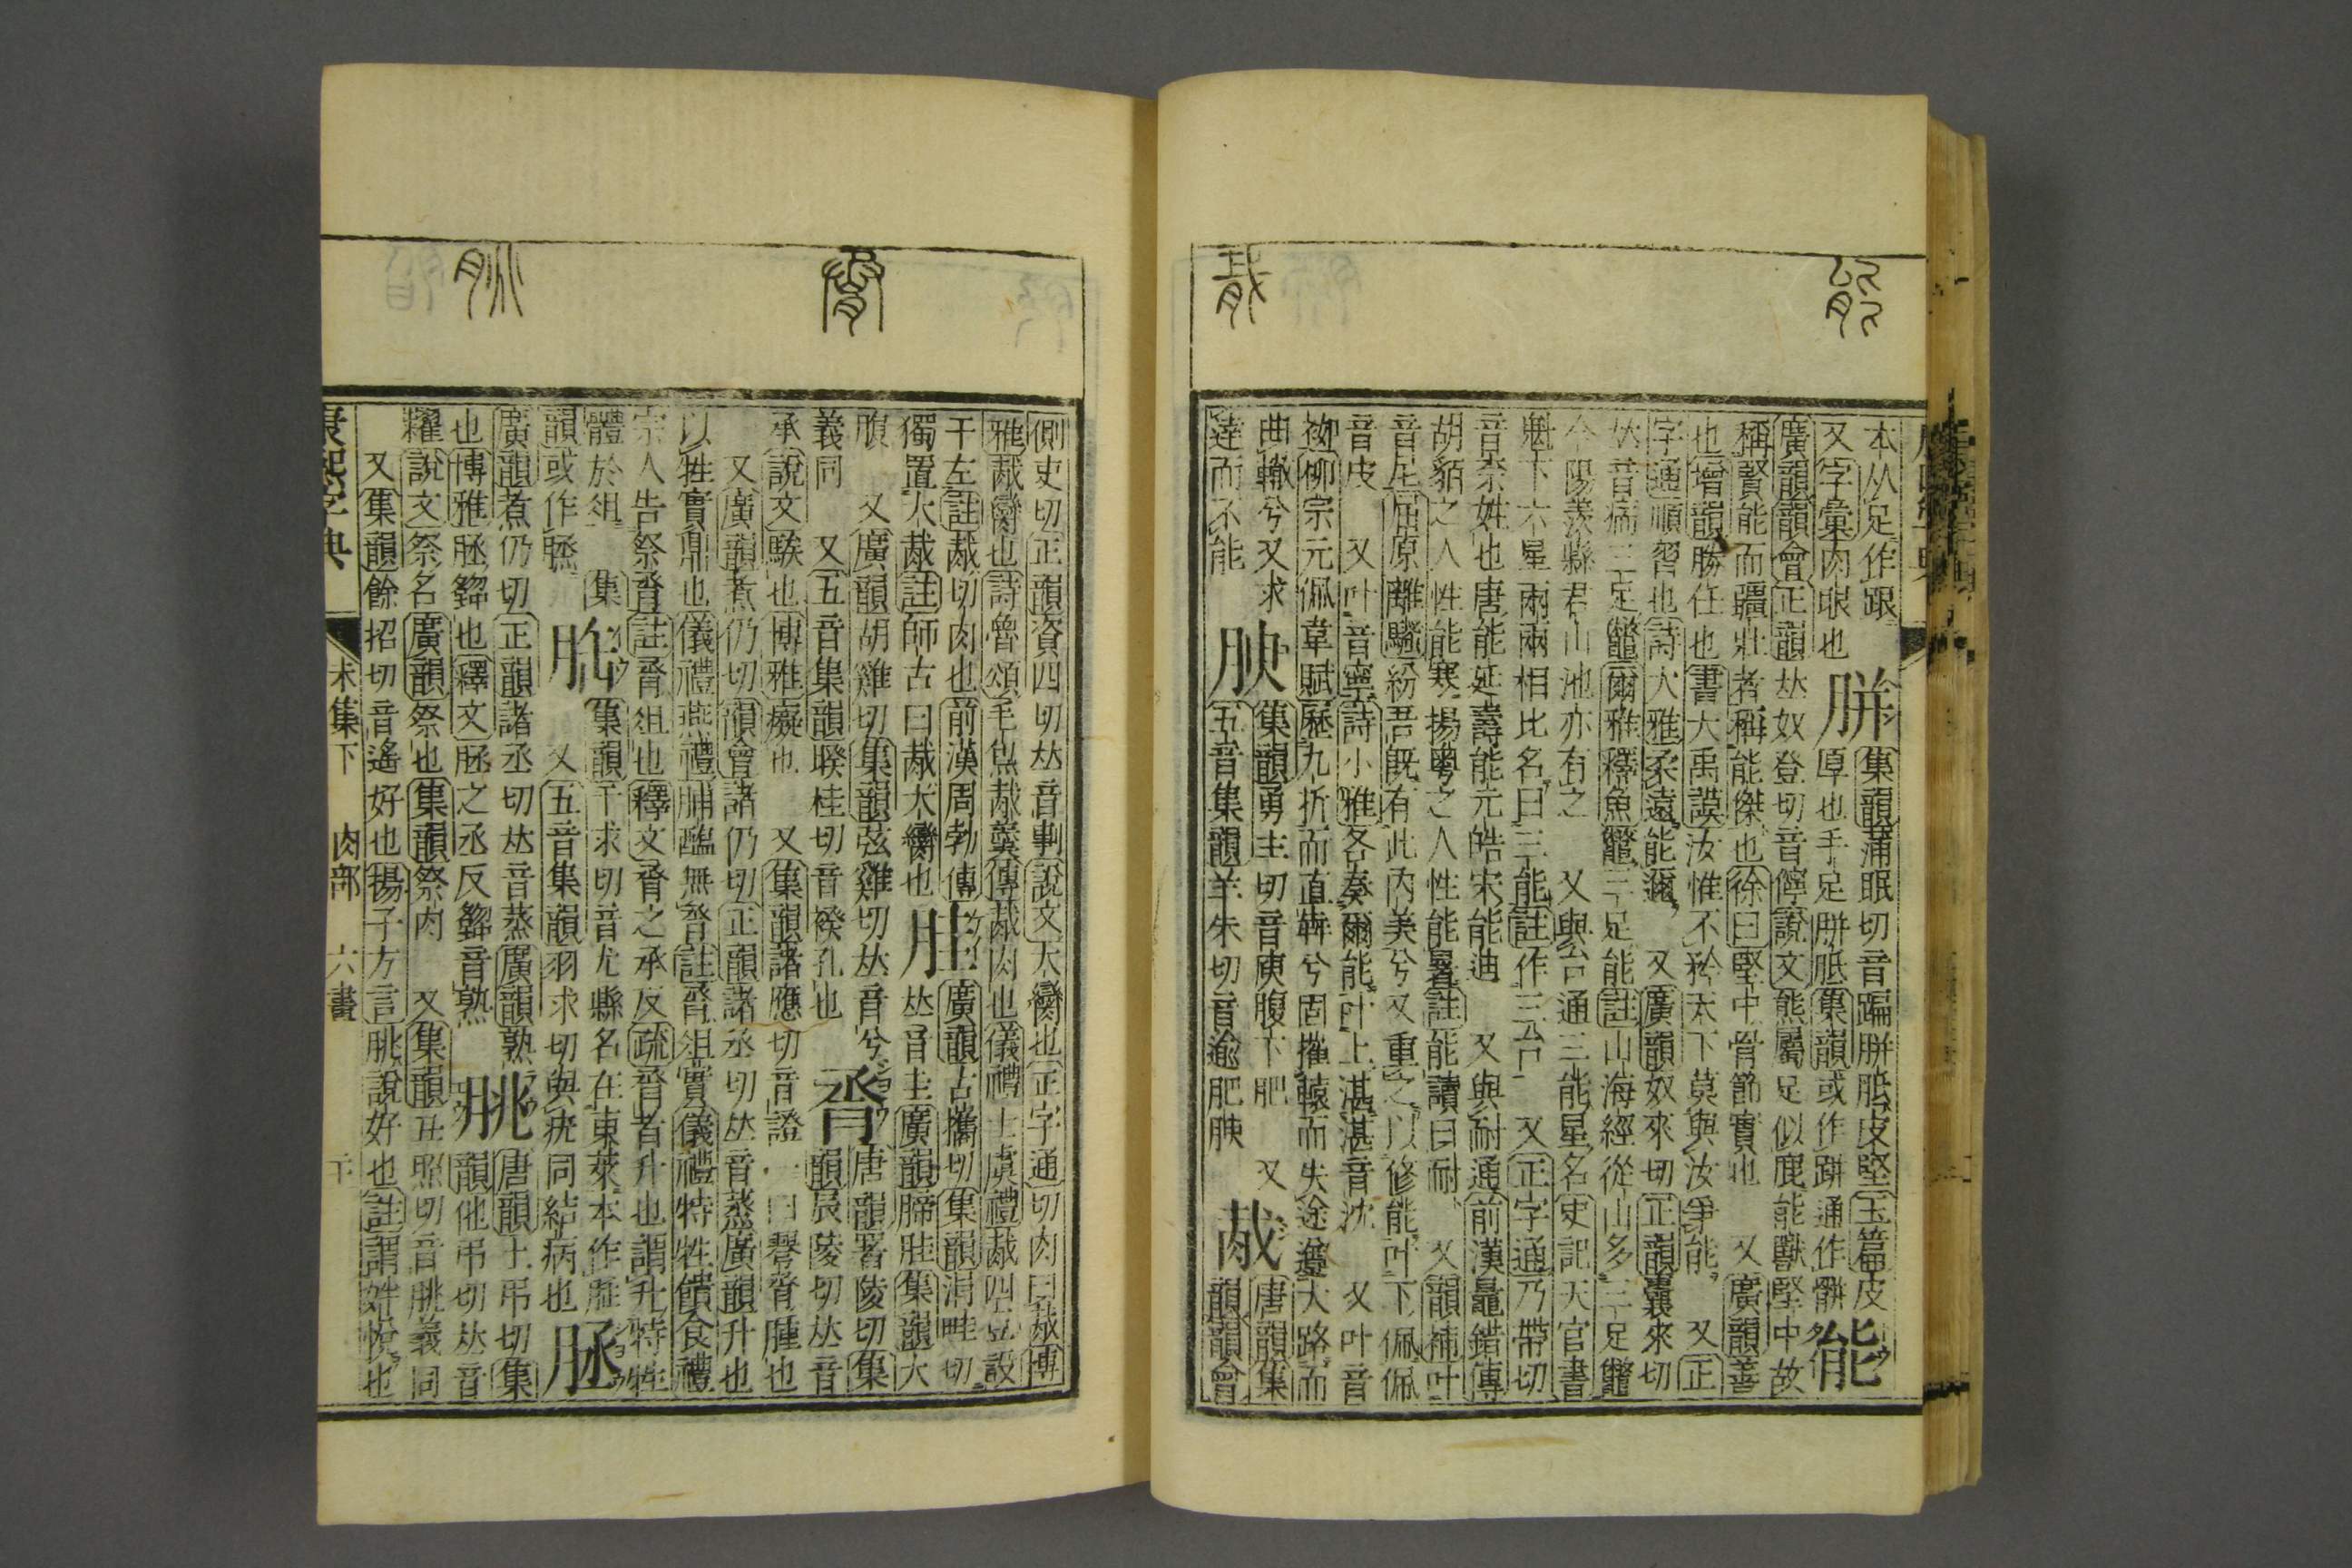 本从足作跟
又字彙肉眼也
胼
集韻蒲眠切音蹁胼胝皮堅玉篇皮
厚也手足胼胝集韻或作跰通作骿
能
廣韻韻會正韻𠀤奴登切音儜說文熊屬足似鹿能獸堅中故
稱賢能而彊壯者稱能傑也徐曰堅中骨節實也 又廣韻善
也增韻勝任也書大禹謨汝惟不矜天下莫與汝爭能 又正
字通順習也詩大雅柔遠能邇 又廣韻奴來切正韻囊來切
𠀤音痈三足鼈爾雅釋魚鼈三足能註山海經從山多三足鼈
今陽羨縣君山池亦有之 又與台通三能星名史記天官書
魁下六星兩兩相比名曰三能註作三台 又正字通乃帶切
音柰姓也唐能延壽能元皓宋能迪 又與耐通前漢鼂錯傳
胡貉之人性能寒揚粵之人性能暑註能讀曰耐 又韻補叶
音尼屈原離騷紛吾旣有此內美兮又重之以修能叶下佩佩
音皮 又叶音寧詩小雅各奏爾能叶上湛湛音沈 又叶音
柳宗元佩韋賦歷九折而直犇兮固摧轅而失途遵大路而
曲轍兮又求
達而不能
腴
集韻勇主切音庾腹下肥 又
五音集韻羊朱切音逾肥腴
胾
唐韻集
韻韻會
側吏切正韻資四切𠀤音剚說文大臠也正字通切肉曰胾博
雅胾臠也詩魯頌毛炰胾羹傳胾肉也儀禮士虞禮胾四豆設
于左註胾切肉也前漢周勃傳
獨置大胾註師古曰胾大臠也
胿
廣韻古攜切集韻涓畦切
𠀤音圭廣韻腣胿集韻大
腹 又廣韻胡雞切集韻弦雞切𠀤音兮
義同 又五音集韻睽桂切音褉孔也
脀
唐韻署陵切集
韻辰陵切𠀤音
承說文騃也博雅癡也 又集韻諸應切音證 一曰臖脀腫也
又廣韻煮仍切韻會諸仍切正韻諸丞切𠀤音蒸廣韻升也
以牲實鼎也儀禮燕禮脯醢無脀註脀俎實儀禮特牲饋食禮
宗人告祭脀註脀俎也釋文脀之承反疏脀者升也謂升特牲
體於俎 集
韻或作脀
集韻于求切音尤縣名在東萊本作
又五音集韻羽求切與疣同結病也
脀
廣韻煮仍切正韻諸丞切𠀤音蒸廣韻熟
也博雅脀也釋文脀之丞反音熟
朓
唐韻土吊切集
韻他吊切𠀤音
糶說文祭名廣韻祭也集韻祭肉 又集韻丑照切音朓義同
又集韻餘招切音遙好也揚子方言朓說好也註謂姅悅也
康熙字典
未集下 肉部 六畫